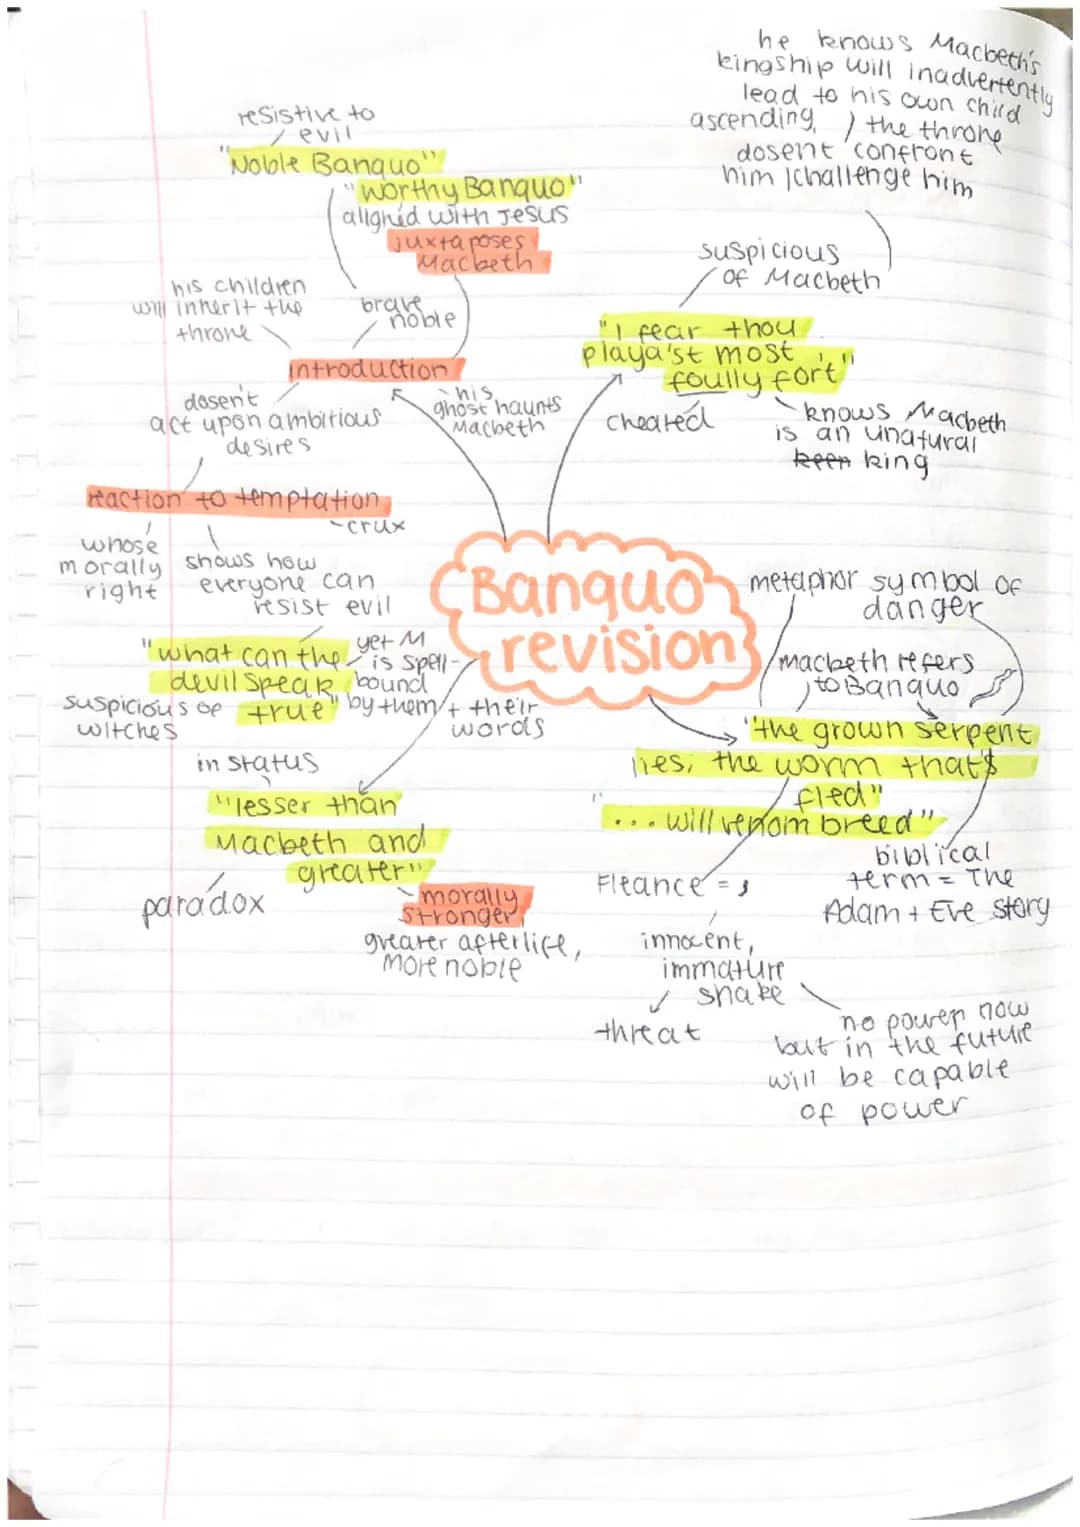 he knows Macbeth's
kingship will inadvertently
lead to his own child
ascending, ) the throne
dosent confront
him /challenge him
resistive to
evil
"Noble Banquo"
"worthy Banquo"
aligned with Jesus
juxtaposes
Macbeth
his children
will inherit the
throne
brave
noble
introduction
his
ghost haunts
Macbeth
dosen't
act upon ambitious
desires
suspicious
of Macbeth
"I fear thou
playa'st most
foully for't"
cheated
knows Macbeth
is an unatural
keen king
reaction to temptation
-crux
whose
morally
right
shows how
everyone can
resist evil
"what can the
devil speak
true"
yet M
is spell-
bound
by them + their
words
suspicious of
witches
Banquo
revision
in status
"lesser than
Macbeth and
greater"
paradox
morally
stronger,
greater afterlife,
more noble
metaphor symbol of
danger
Macbeth refers
to Banquo
"the grown serpent
lies; the worm that's
fled"
"... will venom breed"
biblical
term = The
Adam + Eve story
Fleance = s
innocent,
immature
snake
threat
no power now
but in the future
will be capable
of power